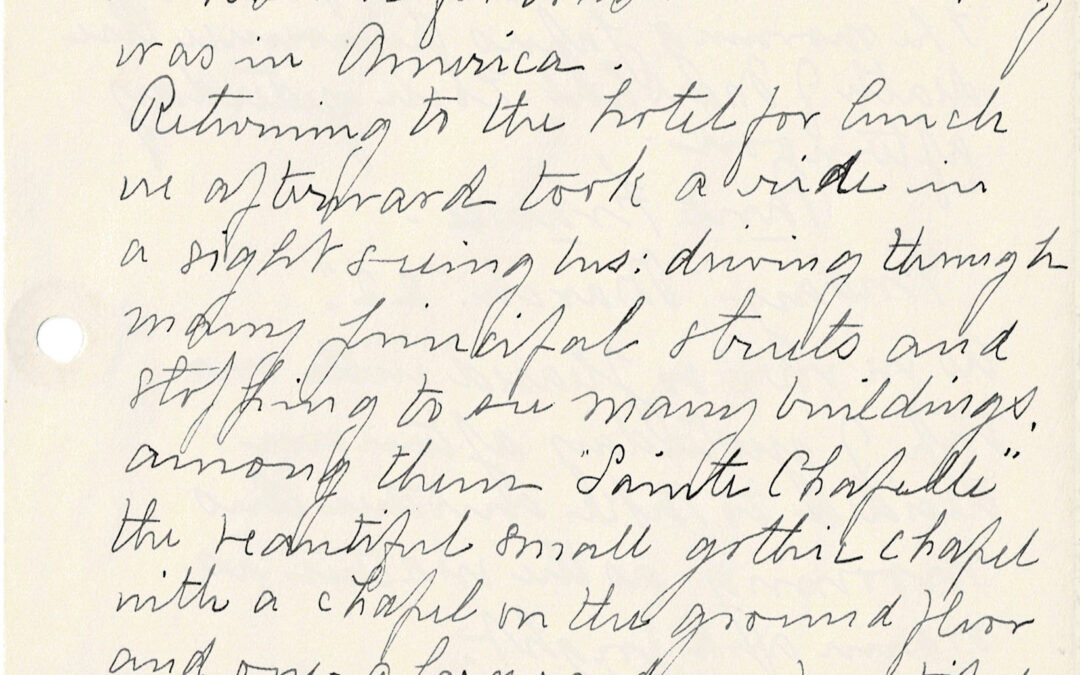 was in America.
Returning to the hotel for lunch
we afterward took a ride in
a sight seeing bus: driving through
many principal streets and
stopping to see many buildings,
among them "Sainte Chapelle"
the beautiful small gothic chapel
with a chapel on the ground floor
and